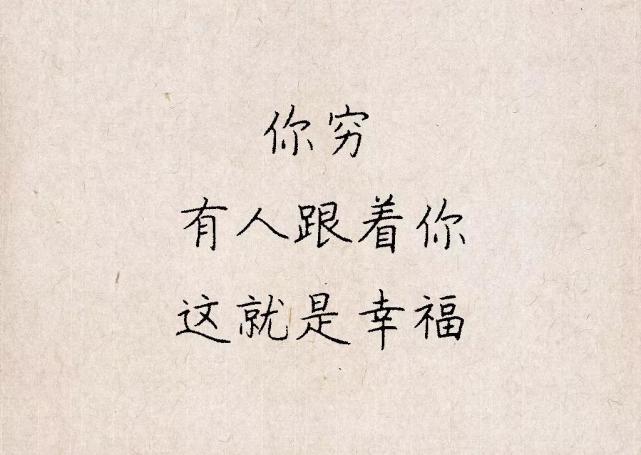 你穷
有人跟着你
这就是幸福